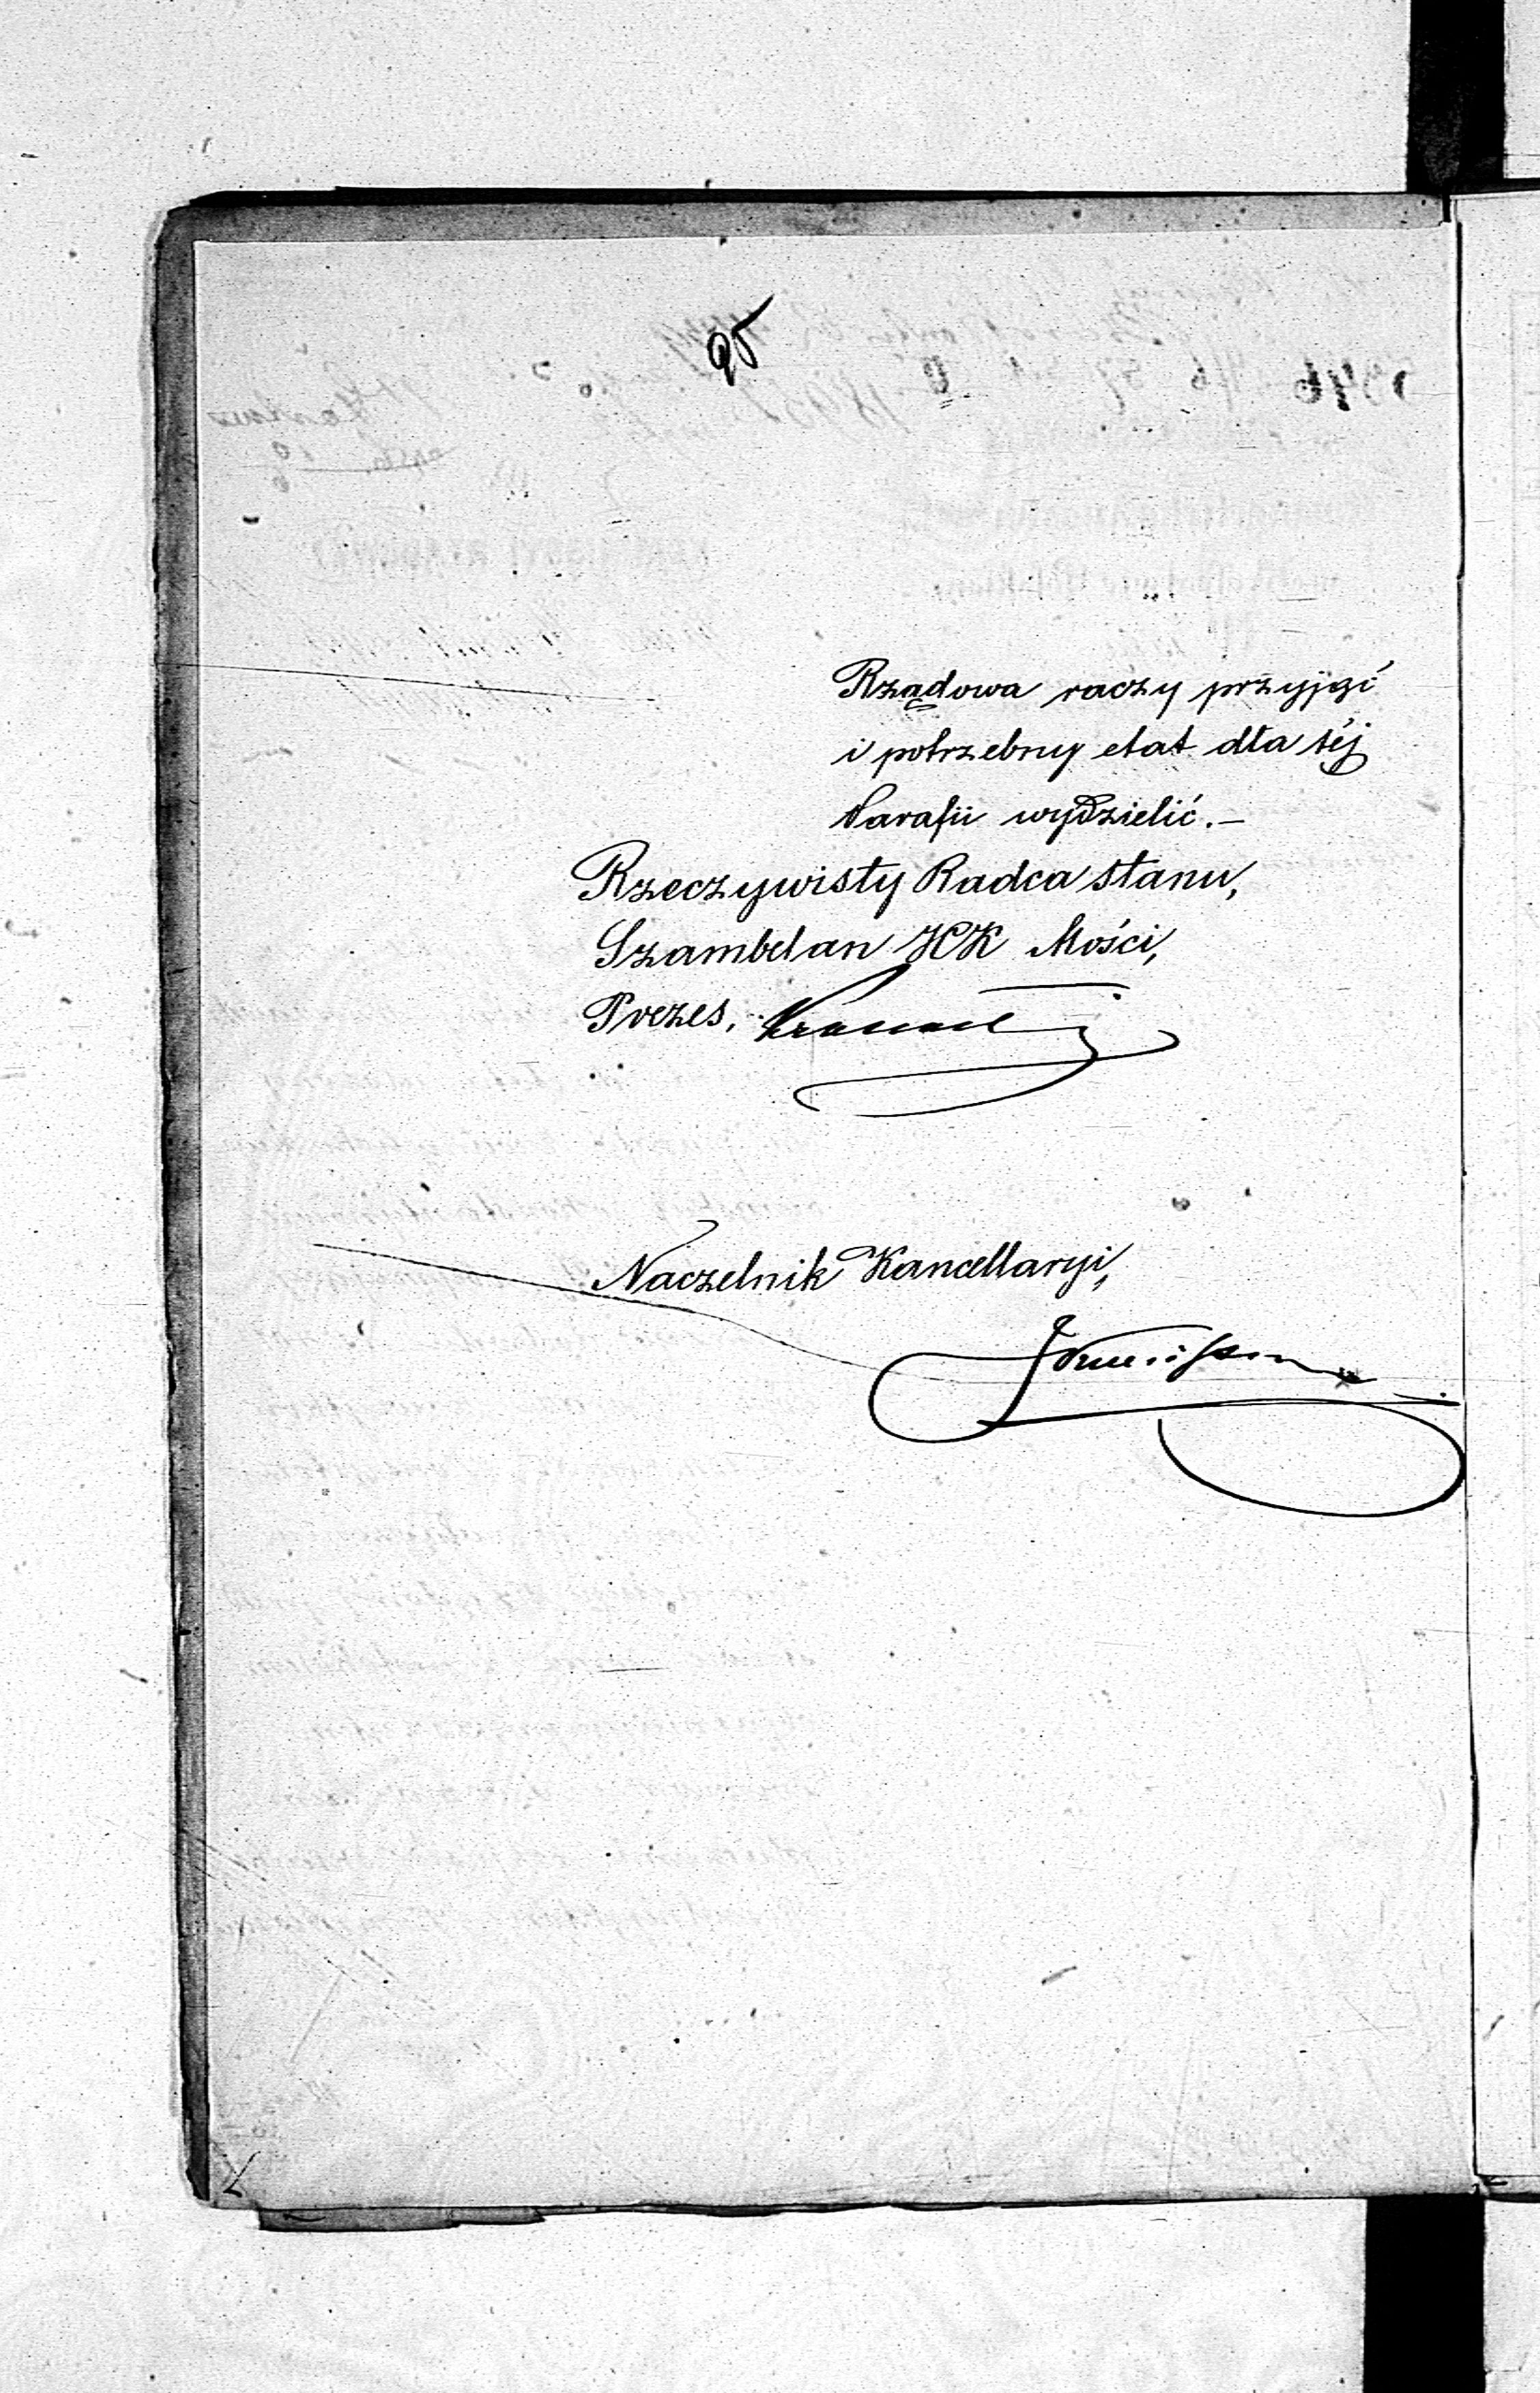 95
Rządowa raczy przyjąć
i potrzebny etat dla téj
Parafii wydzielić.—
Rzeczywisty Radca stanu,
Szambelan JCK Mości,
Prezes,
Naczelnik Kancellaryi,